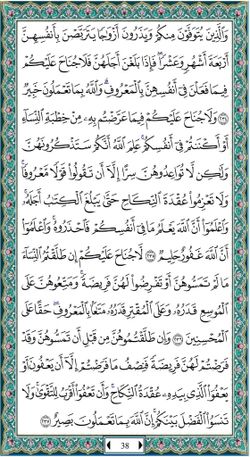 وَالَّذِينَ يُتَوَفَّوْنَ مِنكُمْ وَيَذَرُونَ أَزْوَاجًا يَتَرَبَّصْنَ بِأَنفُسِهِنَّ
أَرْبَعَةَ أَشْهُرٍ وَعَشْرًا ۖ فَإِذَا بَلَغْنَ أَجَلَهُنَّ فَلَا جُنَاحَ عَلَيْكُمْ
فِيمَا فَعَلْنَ فِي أَنفُسِهِنَّ بِالْمَعْرُوفِ ۗ وَاللَّهُ بِمَا تَعْمَلُونَ خَبِيرٌ
٢٣٤ وَلَا جُنَاحَ عَلَيْكُمْ فِيمَا عَرَّضْتُم بِهِ مِنْ خِطْبَةِ النِّسَاءِ
أَوْ أَكْنَنتُمْ فِي أَنفُسِكُمْ ۚ عَلِمَ اللَّهُ أَنَّكُمْ سَتَذْكُرُونَهُنَّ
وَلَٰكِن لَّا تُوَاعِدُوهُنَّ سِرًّا إِلَّا أَن تَقُولُوا قَوْلًا مَّعْرُوفًا ۚ
وَلَا تَعْزِمُوا عُقْدَةَ النِّكَاحِ حَتَّىٰ يَبْلُغَ الْكِتَابُ أَجَلَهُ ۚ
وَاعْلَمُوا أَنَّ اللَّهَ يَعْلَمُ مَا فِي أَنفُسِكُمْ فَاحْذَرُوهُ ۚ وَاعْلَمُوا
أَنَّ اللَّهَ غَفُورٌ حَلِيمٌ ٢٣٥ لَّا جُنَاحَ عَلَيْكُمْ إِن طَلَّقْتُمُ النِّسَاءَ
مَا لَمْ تَمَسُّوهُنَّ أَوْ تَفْرِضُوا لَهُنَّ فَرِيضَةً ۚ وَمَتِّعُوهُنَّ عَلَى
الْمُوسِعِ قَدَرُهُ وَعَلَى الْمُقْتِرِ قَدَرُهُ مَتَاعًا بِالْمَعْرُوفِ ۖ حَقًّا عَلَى
الْمُحْسِنِينَ ٢٣٦ وَإِن طَلَّقْتُمُوهُنَّ مِن قَبْلِ أَن تَمَسُّوهُنَّ وَقَدْ
فَرَضْتُمْ لَهُنَّ فَرِيضَةً فَنِصْفُ مَا فَرَضْتُمْ إِلَّا أَن يَعْفُونَ أَوْ
يَعْفُوَ الَّذِي بِيَدِهِ عُقْدَةُ النِّكَاحِ ۚ وَأَن تَعْفُوا أَقْرَبُ لِلتَّقْوَىٰ ۚ وَلَا
تَنسَوُا الْفَضْلَ بَيْنَكُمْ ۚ إِنَّ اللَّهَ بِمَا تَعْمَلُونَ بَصِيرٌ ٢٣٧
38